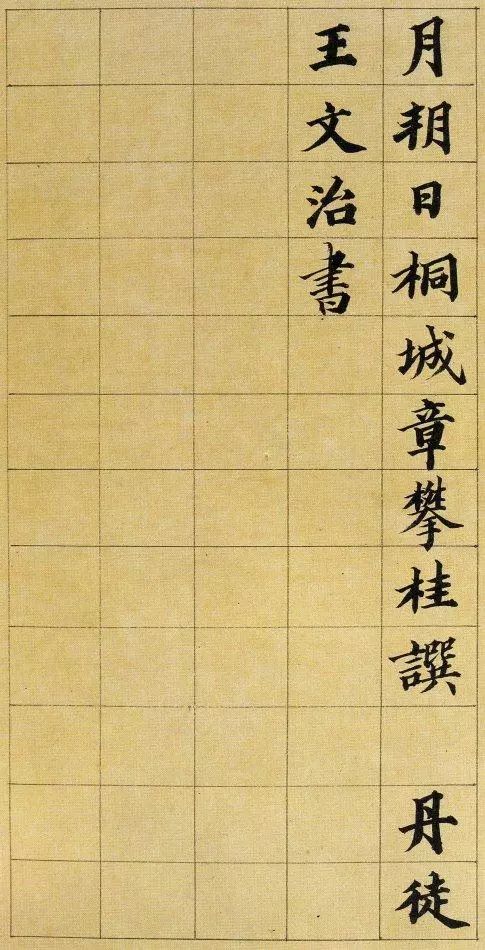 月朔日桐城章攀桂譔　丹徒
王文治書